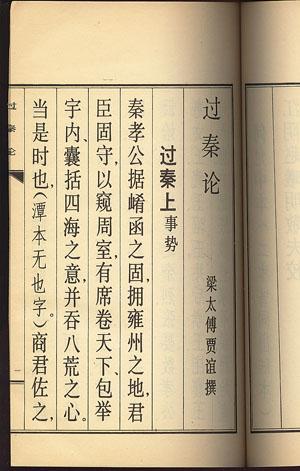 过秦论
梁太傅贾谊撰
过秦上 事势
秦孝公据崤函之固,拥雍州之地,君
臣固守,以窥周室,有席卷天下、包举
宇内、囊括四海之意,并吞八荒之心。
当是时也,(潭本无也字。)商君佐之,
过秦论
一